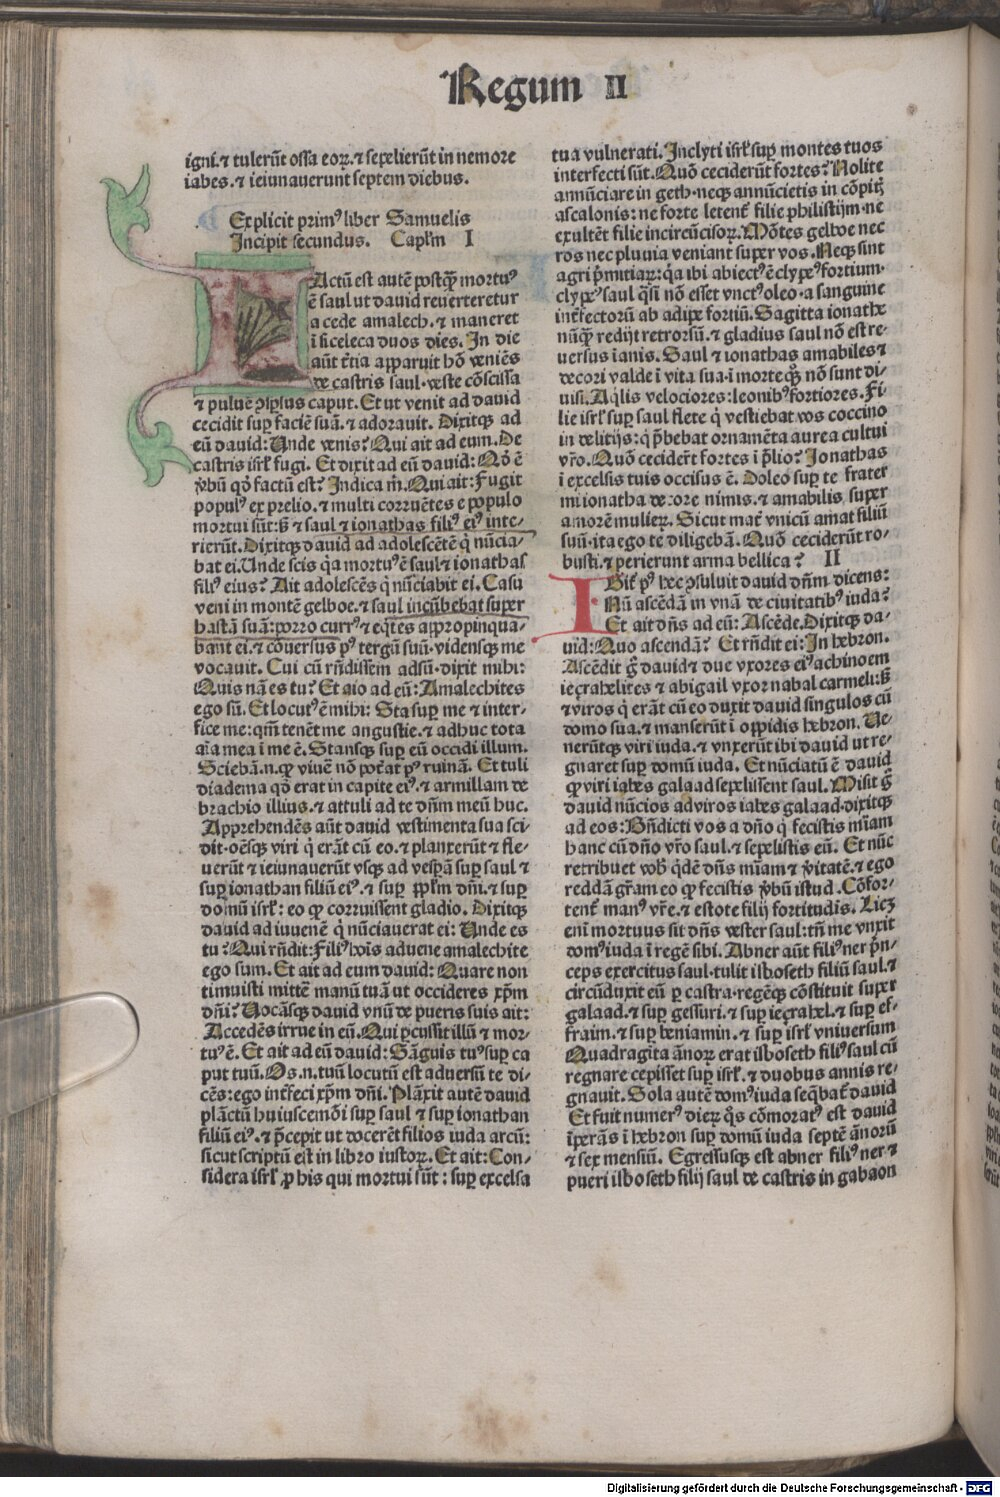 Regum II
igni.⁊ tulerūt ossa eoꝝ.⁊ sepelierūt in nemore
iabes.⁊ ieiunauerunt septem diebus.
Explicit primꝰ liber Samuelis
Incipit secundus. Caplm I
Factū est autē postꝗ̄ mortuꝰ
ē saul ut dauid reuerteretur
a cede amalech.⁊ maneret
ī siceleca duos dies. In die
aūt t̄tia apparuit hō veniēs
de castris saul.veste cōscissa
⁊ puluē ꝯspsus caput. Et ut venit ad dauid
cecidit suꝑ faciē suā.⁊ adorauit. Dixitqꝫ ad
eū dauid: Unde venis? Qui ait ad eum. De
castris isrl̄ fugi. Et dixit ad eū dauid: Qō ē
v̄bū qd̄ factū est? Indica m̄. Qui ait: Fugit
populꝰ ex prelio.⁊ multi corruētes e populo
mortui sūt: sꝫ ⁊ saul ⁊ ionathas filiꝰ eiꝰ inte-
rierūt. Dixitqꝫ dauid ad adolescētē q̇ nūcia-
bat ei. Unde scis qꝛ mortuꝰ ē saul ⁊ ionathas
filiꝰ eius? Ait adolescēs q̇ nūciabit ei. Casu
veni in montē gelboe.⁊ saul incūbebat super
hastā suā: porro currꝰ ⁊ eq̇tes appropinqua-
bant ei.⁊ cōuersus pꝰ tergū suū.vidensqꝫ me
vocauit. Cui cū rn̄dissem adsū.dixit mihi:
Quis nā es tu? Et aio ad eū: Amalechites
ego sū. Et locutꝰ ē mihi: Sta suꝑ me ⁊ inter-
fice me: qm̄ tenēt me angustie.⁊ adhuc tota
aīa mea ī me ē. Stansqꝫ suꝑ eū occidi illum.
Sciebā.n.ꝙ viuē nō pot̄at pꝰ ruinā. Et tuli
diadema qd̄ erat in capite eiꝰ.⁊ armillam de
brachio illius.⁊ attuli ad te dn̄m meū huc.
Apprehendēs aūt dauid vestimenta sua sci-
dit.oēsqꝫ viri q̇ erāt cū eo.⁊ planxerūt ⁊ fle-
uerūt ⁊ ieiunauerūt vsqꝫ ad vesꝑā suꝑ saul ⁊
suꝑ ionathan filiū eiꝰ.⁊ suꝑ ppl̄m dn̄i.⁊ suꝑ
domū isrl̄: eo ꝙ corruissent gladio. Dixitqꝫ
dauid ad iuuenē q̇ nūciauerat ei: Unde es
tu? Qui rn̄dit: Filiꝰ hoīs aduene amalechite
ego sum. Et ait ad eum dauid: Quare non
timuisti mittē manū tuā ut occideres xp̄m
dn̄i? Uocāsqꝫ dauid vnū de pueris suis ait:
Accedēs irrue in eū. Qui ꝑcussit illū ⁊ mor-
tuꝰ ē. Et ait ad eū dauid: Sāguis tuꝰ suꝑ ca
put tuū. Os.n.tuū locutū est aduersū te di-
cēs: ego int̄feci xp̄m dn̄i. Plāxit autē dauid
plāctū huiuscemōi suꝑ saul ⁊ suꝑ ionathan
filiū eiꝰ.⁊ p̄cepit ut docerēt filios iuda arcū:
sicut scriptū est in libro iustoꝝ. Et ait: Con-
sidera isrl̄ ꝓ his qui mortui sūt: suꝑ excelsa
tua vulnerati. Inclyti isrl̄ suꝑ montes tuos
interfecti sūt. Quō ceciderūt fortes? Nolite
annūciare in geth.neqꝫ annūcietis in cōpitꝭ
ascalonis: ne forte letent̄ filie philistijm.ne
exultēt filie incircūcisoꝝ. Mōtes gelboe nec
ros nec pluuia veniant super vos. Neqꝫ sint
agri p̄mitiaꝝ: qꝛ ibi abiectꝰ ē clypeꝰ fortium.
clypeꝰ saul q̄si nō esset vnctꝰ oleo.a sanguine
int̄fectorū ab adipe fortiū. Sagitta ionathe
nūꝗ̄ redijt retrorsū.⁊ gladius saul nō est re-
uersus īanis. Saul ⁊ ionathas amabiles ⁊
decori valde ī vita sua.ī morte qꝫ nō sunt di-
uisi. Aq̇lis velociores: leonibꝰ fortiores. Fi-
lie isrl̄ suꝑ saul flete q̇ vestiebat vos coccino
in delitijs: q̇ p̄bebat ornamēta aurea cultui
vr̄o. Quō cecider̄t fortes ī p̄lio? Jonathas
ī excelsis tuis occisus ē. Doleo suꝑ te frater
mi ionatha decore nimis.⁊ amabilis super
amorē mulieꝝ. Sicut mat̄ vnicū amat filiū
suū.ita ego te diligebā. Quō ceciderūt ro-
busti.⁊ perierunt arma bellica? II
Igit̄ pꝰ hec ꝯsuluit dauid dn̄m dicens:
Nū ascēdā in vnā de ciuitatibꝰ iuda?
Et ait dn̄s ad eū: Ascēde. Dixitqꝫ da-
uid: Quo ascendā? Et rn̄dit ei: In hebron.
Ascēdit g̊ dauid ⁊ due vxores eiꝰ achinoem
ieçrahelites ⁊ abigail vxor nabal carmeli: sꝫ
⁊ viros q̇ erāt cū eo duxit dauid singulos cū
domo sua.⁊ manserūt ī oppidis hebron. Ue-
nerūtqꝫ viri iuda.⁊ vnxerūt ibi dauid ut re-
gnaret suꝑ domū iuda. Et nūciatū ē dauid
ꝙ viri iabes galaad sepelissent saul. Misit g̊
dauid nūcios ad viros iabes galaad.dixitqꝫ
ad eos: Bn̄dicti vos a dn̄o q̇ fecistis mīam
hanc cū dn̄o vr̄o saul.⁊ sepelistis eū. Et nūc
retribuet vob̄ q̇dē dn̄s mīam ⁊ v̄itatē.⁊ ego
reddā gr̄am eo ꝙ fecistis v̄bū istud. Cōfor-
tent̄ manꝰ vr̄e.⁊ estote filij fortitudis. Licꝫ
enī mortuus sit dn̄s vester saul: tn̄ me vnxit
domꝰ iuda ī regē sibi. Abner aūt filiꝰ ner p̄n-
ceps exercitus saul.tulit isboseth filiū saul.⁊
circūduxit eū ꝑ castra.regēqꝫ cōstituit super
galaad.⁊ suꝑ gessuri.⁊ suꝑ ieçrahel.⁊ suꝑ ef-
fraim.⁊ suꝑ beniamin.⁊ suꝑ isrl̄ vniuersum
Quadragīta ānoꝝ erat isboseth filiꝰ saul cū
regnare cepisset suꝑ isrl̄.⁊ duobus annis re-
gnauit. Sola autē domꝰ iuda seq̄bat̄ dauid
Et fuit numerꝰ dieꝝ q̊s cōmoratꝰ est dauid
īperās ī hebron suꝑ domū iuda septē ānorū
⁊ sex mensiū. Egressusqꝫ est abner filiꝰ ner ⁊
pueri isboseth filij saul de castris in gabaon
Digitalisierung gefördert durch die Deutsche Forschungsgemeinschaft - DFG